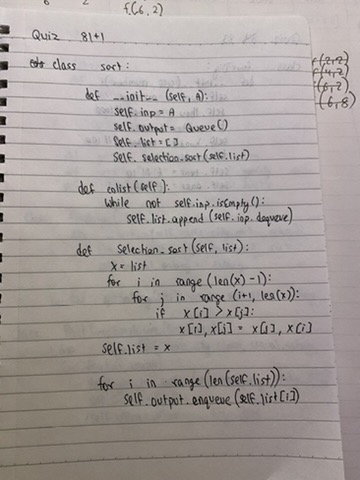 f(6, 2)
Quiz 81+1
class sort:
def __init__ (self, A):
self.inp = A
self.output = Queue()
self.list = []
self.selection_sort(self.list)
def enlist(self):
while not self.inp.isEmpty():
self.list.append(self.inp.dequeue)
def selection_sort(self, list):
x = list
for i in range(len(x)-1):
for j in range (i+1, len(x)):
if x[i] > x[j]:
x[i], x[j] = x[j], x[i]
self.list = x
for i in range(len(self.list)):
self.output.enqueue(self.list[i])
f(2,2)
f(4,2)
(6,2)
(6,8)